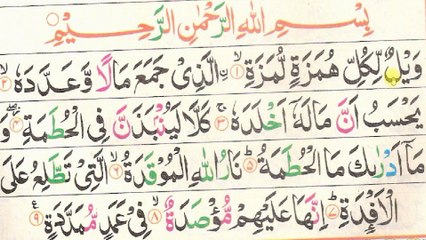 بِسْمِ اللهِ الرَّحْمٰنِ الرَّحِيْمِ
وَيْلٌ لِّكُلِّ هُمَزَةٍ لُّمَزَةِ ۙ﴿۱﴾ الَّذِىْ جَمَعَ مَالًا وَّعَدَّدَهٗ ۙ﴿۲﴾
يَحْسَبُ اَنَّ مَالَهٗٓ اَخْلَدَهٗ ۚ﴿۳﴾ كَلَّا لَيُنْۢبَذَنَّ فِى الْحُطَمَةِ ۖ﴿۴﴾ وَ
مَاۤ اَدْرٰىكَ مَا الْحُطَمَةُ ؕ﴿۵﴾ نَارُ اللهِ الْمُوْقَدَةُ ۙ﴿۶﴾ الَّتِىْ تَطَّلِعُ عَلَى
الْاَفْـِٕدَةِ ؕ﴿۷﴾ اِنَّهَا عَلَيْهِمْ مُّؤْصَدَةٌ ۙ﴿۸﴾ فِىْ عَمَدٍ مُّمَدَّدَةٍ ﴿۹﴾